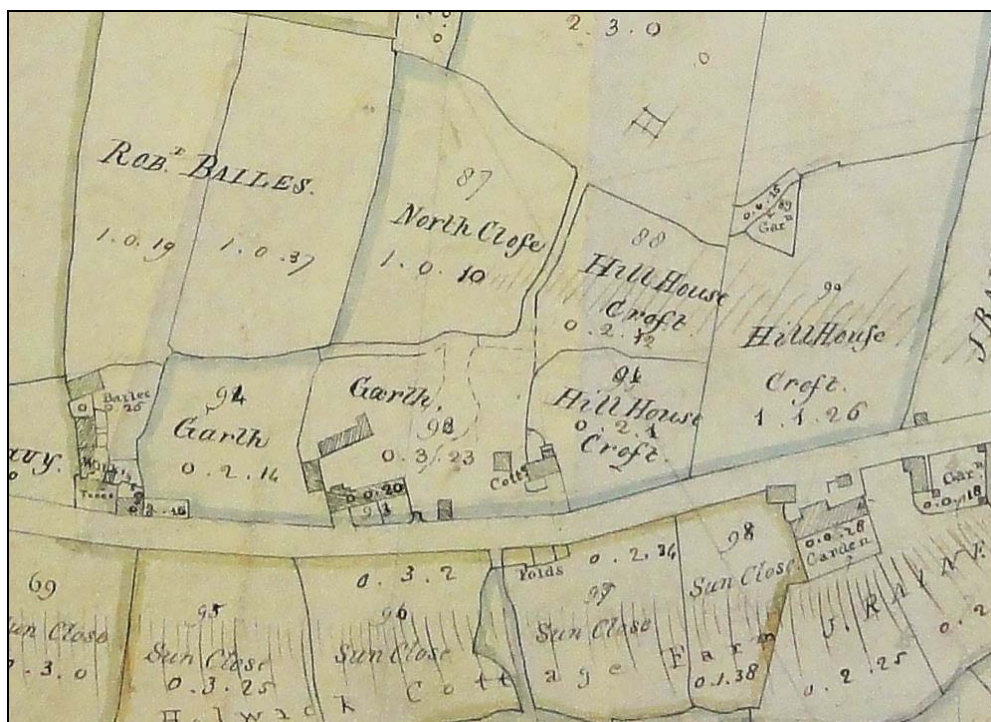 2. 3. 0
ROB.t BAILES.
1. 0. 19
1. 0. 37
87
North Close
1. 0. 10
88
Hill House
Croft
0. 2. 12
0. 0. 25
89
Gar.n
90
Hill House
Croft.
1. 1. 26
94
Garth
0. 2. 14
Garth.
0. 3. 23
0. 0. 20
93
91
Hill House
0. 2. 1
Croft.
Cottg
Bailes
0. 0. 18
Gar.n
0. 0. 28
Garden
69
Sun Close
. 3. 0
95
Sun Close
0. 3. 25
0. 3. 2
96
Sun Close
Folds
0. 2. 34
97
Sun Close
98
Sun Close.
0. 1. 38
J. RAINE
0. 2. 25
0. 2
Holwick Cottage Farm